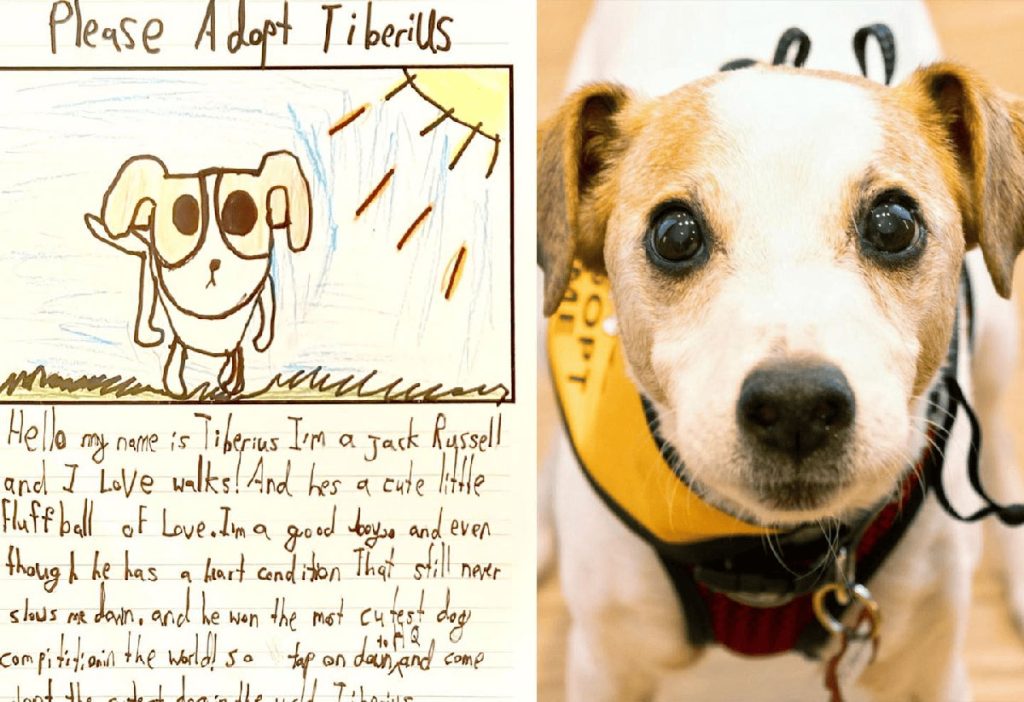 Please Adopt Tiberius
Hello my name is Tiberius I'm a jack Russell
and I Love walks! And hes a cute little
fluffball of Love. I'm a good boy, and even
though he has a heart condition That still never
slows me down, and he won the most cutest dog
compitition in the world! so tap on down to HQ and come
the cutest dog in the world Tiberius
OPT
ME